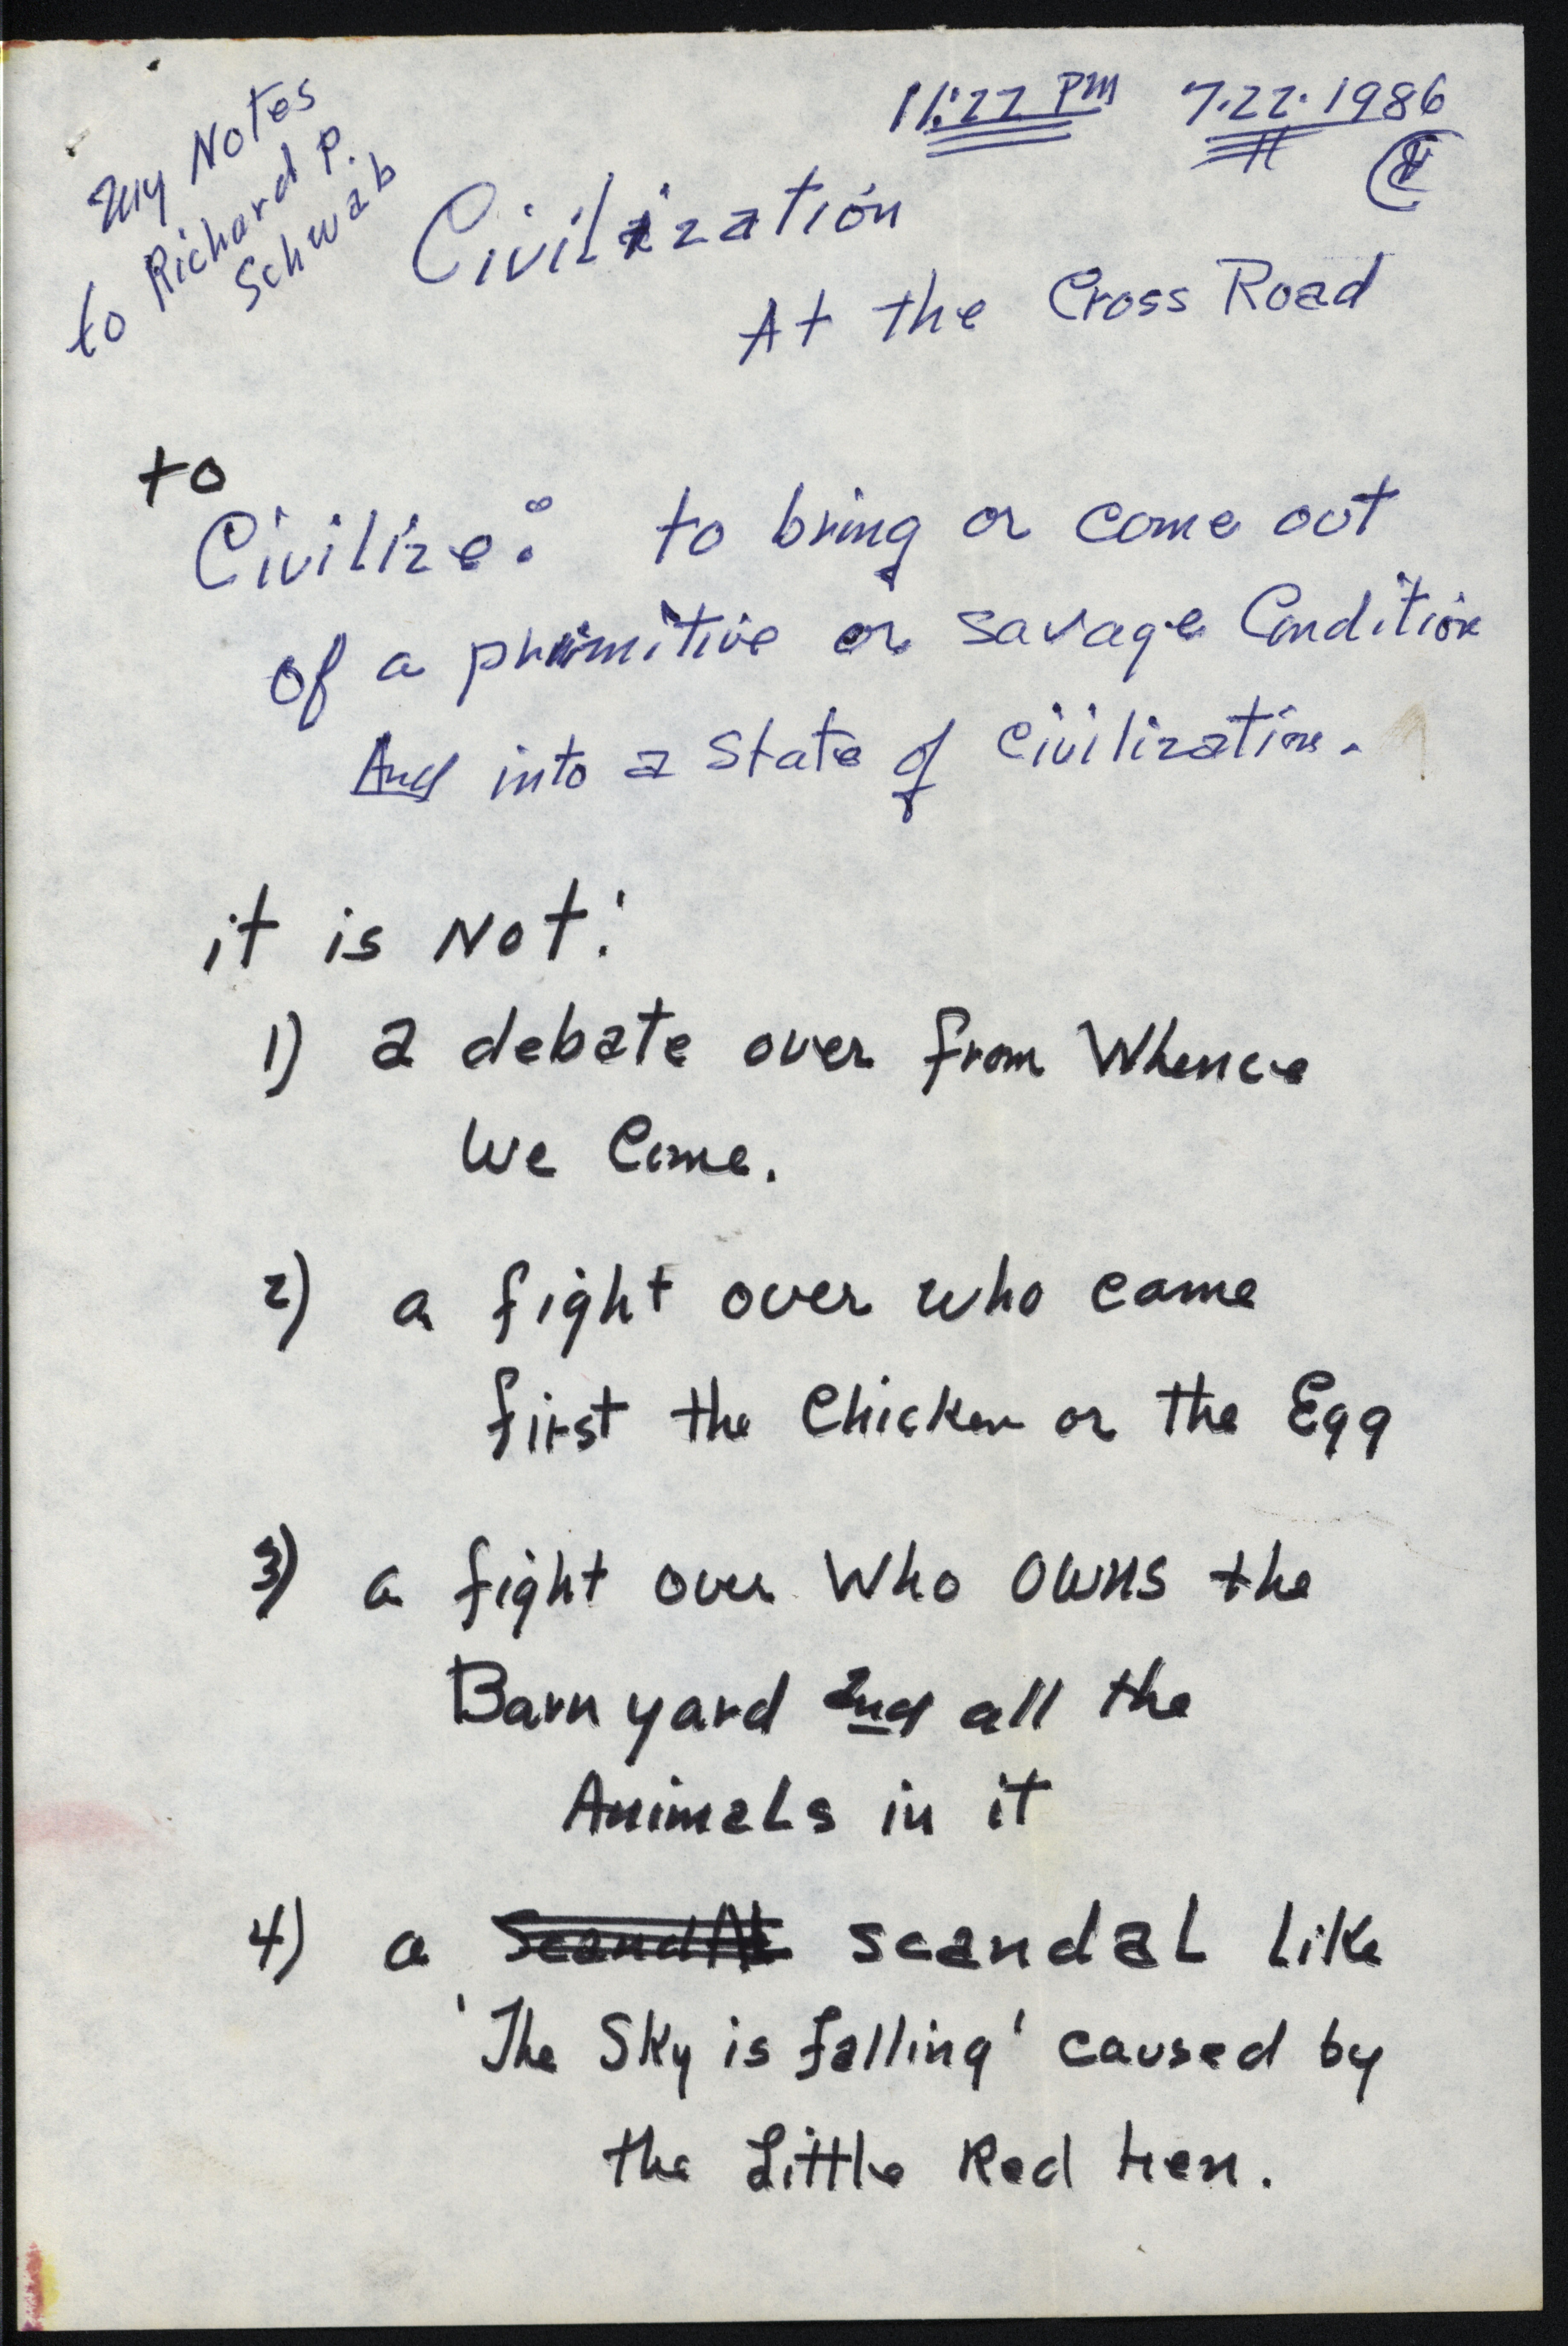 My Notes
to Richard P.
Schwab
11:22 PM 7.22.1986
Civilization
At the Cross Road
to
Civilize: to bring or come out
of a primitive or savage Condition
And into a State of Civilization.
it is Not:
1) a debate over from Whence
We Come.
2) a fight over who came
first the Chicken or the Egg
3) a fight over Who Owns the
Barn yard and all the
Animals in it
4) a Scandal scandal like
'The Sky is falling' caused by
the Little Red Hen.